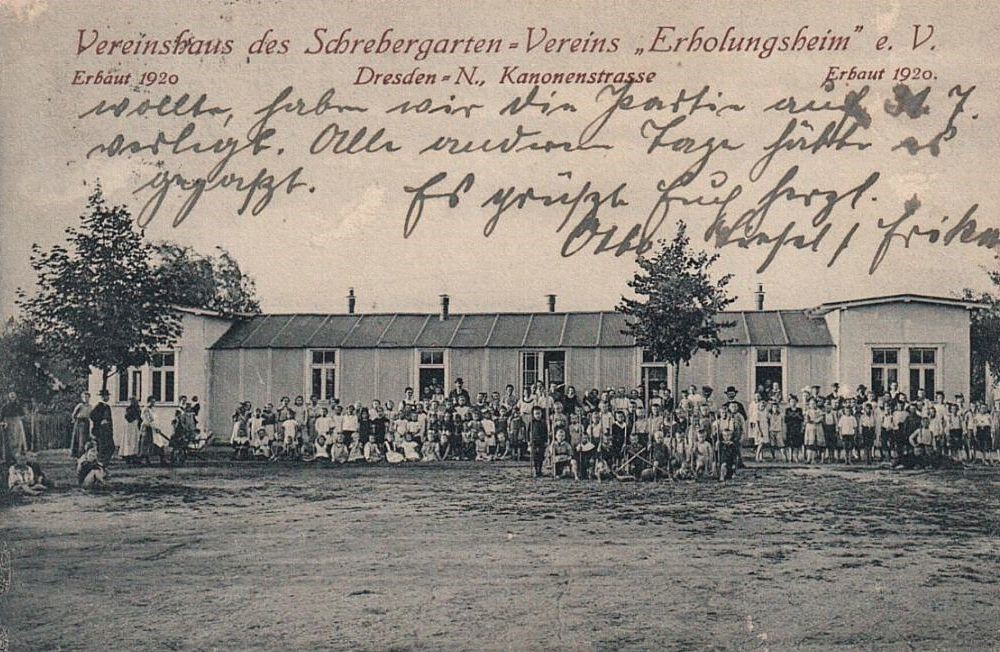 Vereinshaus des Schrebergarten=Vereins „Erholungsheim“ e. V.
Erbaut 1920 Dresden=N., Kanonenstrasse Erbaut 1920.
wollte, haben wir die Partie auf 31. 7.
verlegt. Alle anderen Tage hätte es
gepaßt. Es grüßt Euch herzl.
Otto